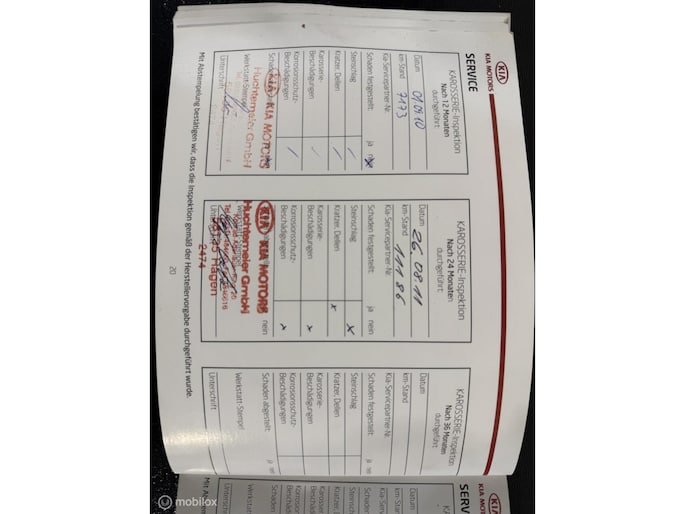 KIA
KIA MOTORS
SERVICE
KAROSSERIE-Inspektion
Nach 12 Monaten
durchgeführt:
Datum 01.09.10
km-Stand 7173
Kia-Servicepartner-Nr.
Schaden festgestellt: ja nein
Steinschlag
Kratzer, Dellen
Karosserie-
Beschädigungen
Korrosionsschutz-
Beschädigungen
KIA KIA MOTORS
Huchtemeier GmbH
Werkstatt-Stempel
Unterschrift
KAROSSERIE-Inspektion
Nach 24 Monaten
durchgeführt:
Datum 26.08.11
km-Stand 11186
Kia-Servicepartner-Nr.
Schaden festgestellt: ja nein
Steinschlag x
Kratzer, Dellen x
Karosserie-
Beschädigungen x
Korrosionsschutz-
Beschädigungen x
nein
KIA KIA MOTORS
Huchtemeier GmbH
Hagen
2474
KAROSSERIE-Inspektion
Nach 36 Monaten
durchgeführt:
Datum
km-Stand
Kia-Servicepartner-Nr.
Schaden festgestellt: ja
Steinschlag
Kratzer, Dellen
Karosserie-
Beschädigungen
Korrosionsschutz-
Beschädigungen
Schaden abgestellt: ja
Werkstatt-Stempel
Unterschrift
Mit Abstempelung bestätigen wir, dass die Inspektion gemäß der Herstellervorgabe durchgeführt wurde.
20
KIA
KIA MOTORS
SERV
KAROSS
Datum
km-Stand
Kia-Service
Schaden
Steinsch
Kratzer
Karosse
Beschä
Korros
Besch
Scha
Werk
Unters
Mit Ab
© mobilox